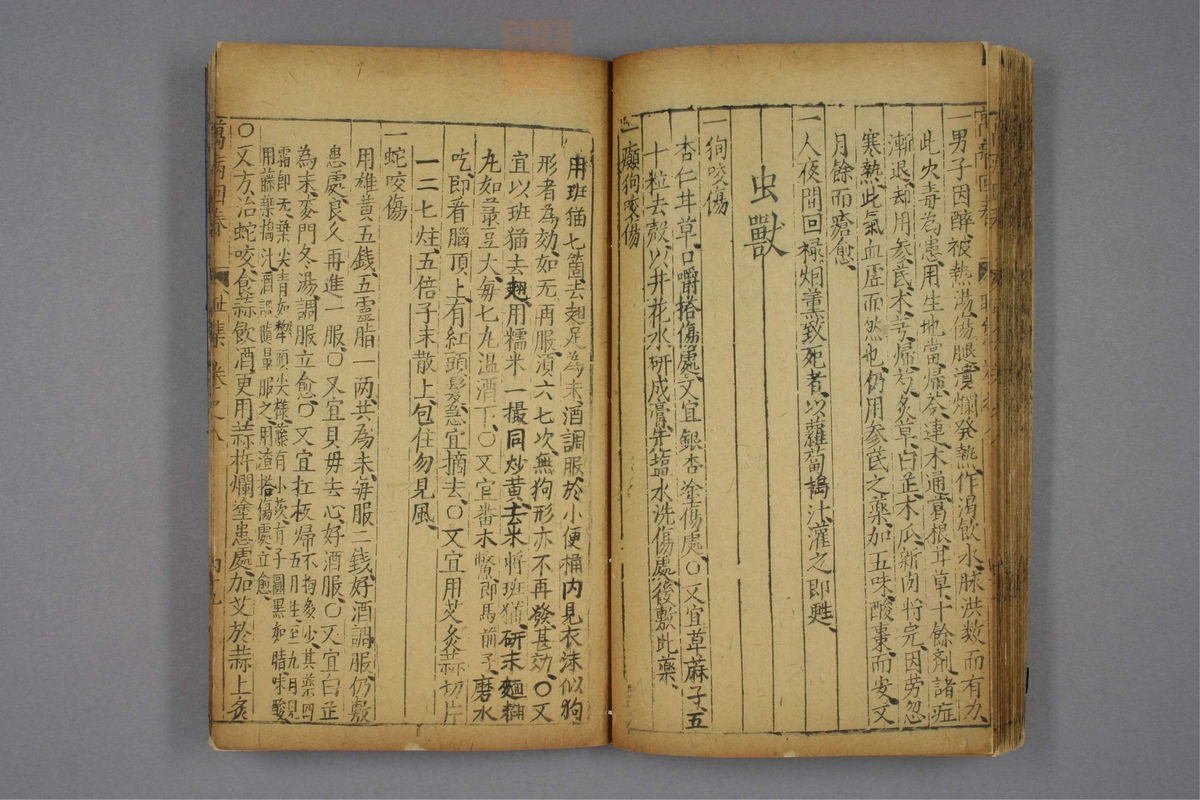 一男子因醉被熱湯傷腿潰爛發熱作渴飲水脉洪数而有力
此火毒為患用生地當歸芩連木通葛根甘草十餘劑諸症
漸退却用参芪术芍歸炙草白芷木瓜新肉将完因劳忽
寒熱此氣血虚而然也仍用参芪之藥加五味酸棗而安又
月餘而瘡愈
一人夜間回禄烟薫致死者以蘿蔔搗汁灌之即甦
虫獸
一狗咬傷
杏仁甘草口嚼搭傷處又宜銀杏塗傷處〇又宜草蔴子五
十粒去殻以井花水研成膏先塩水洗傷處後敷此藥
一癲狗咬傷
用班猫七箇去翅足為末酒調服於小便桶内見衣沫似狗
形者為効如无再服湏六七次無狗形亦不再發甚効〇又
宜以班猫去翅用糯米一撮同炒黄去米将班猫研末麵糊
丸如菉豆大每七九温酒下〇又宜番木鱉即馬前子磨水
吃即看腦頂上有紅頭髮急宜摘去〇又宜用艾灸蒜切片
一二七炷五倍子末散上包住勿見風
一蛇咬傷
用雄黄五錢五靈脂一两共為末每服二錢好酒調服仍敷
患處良久再進一服〇又宜貝母去心好酒服〇又宜白芷
為末麥門冬湯調服立愈〇又宜扛板歸不拘多少其藥四
五月生至九月見
霜即无葉尖青如犂頭尖様藤有小茨有子圓黒如睛味酸
用藤葉搗汁酒調随量服之用渣搭傷處立愈
〇又方治蛇咬食蒜飲酒更用蒜杵爛塗患處加艾於蒜上灸
萬病回春 卷之八